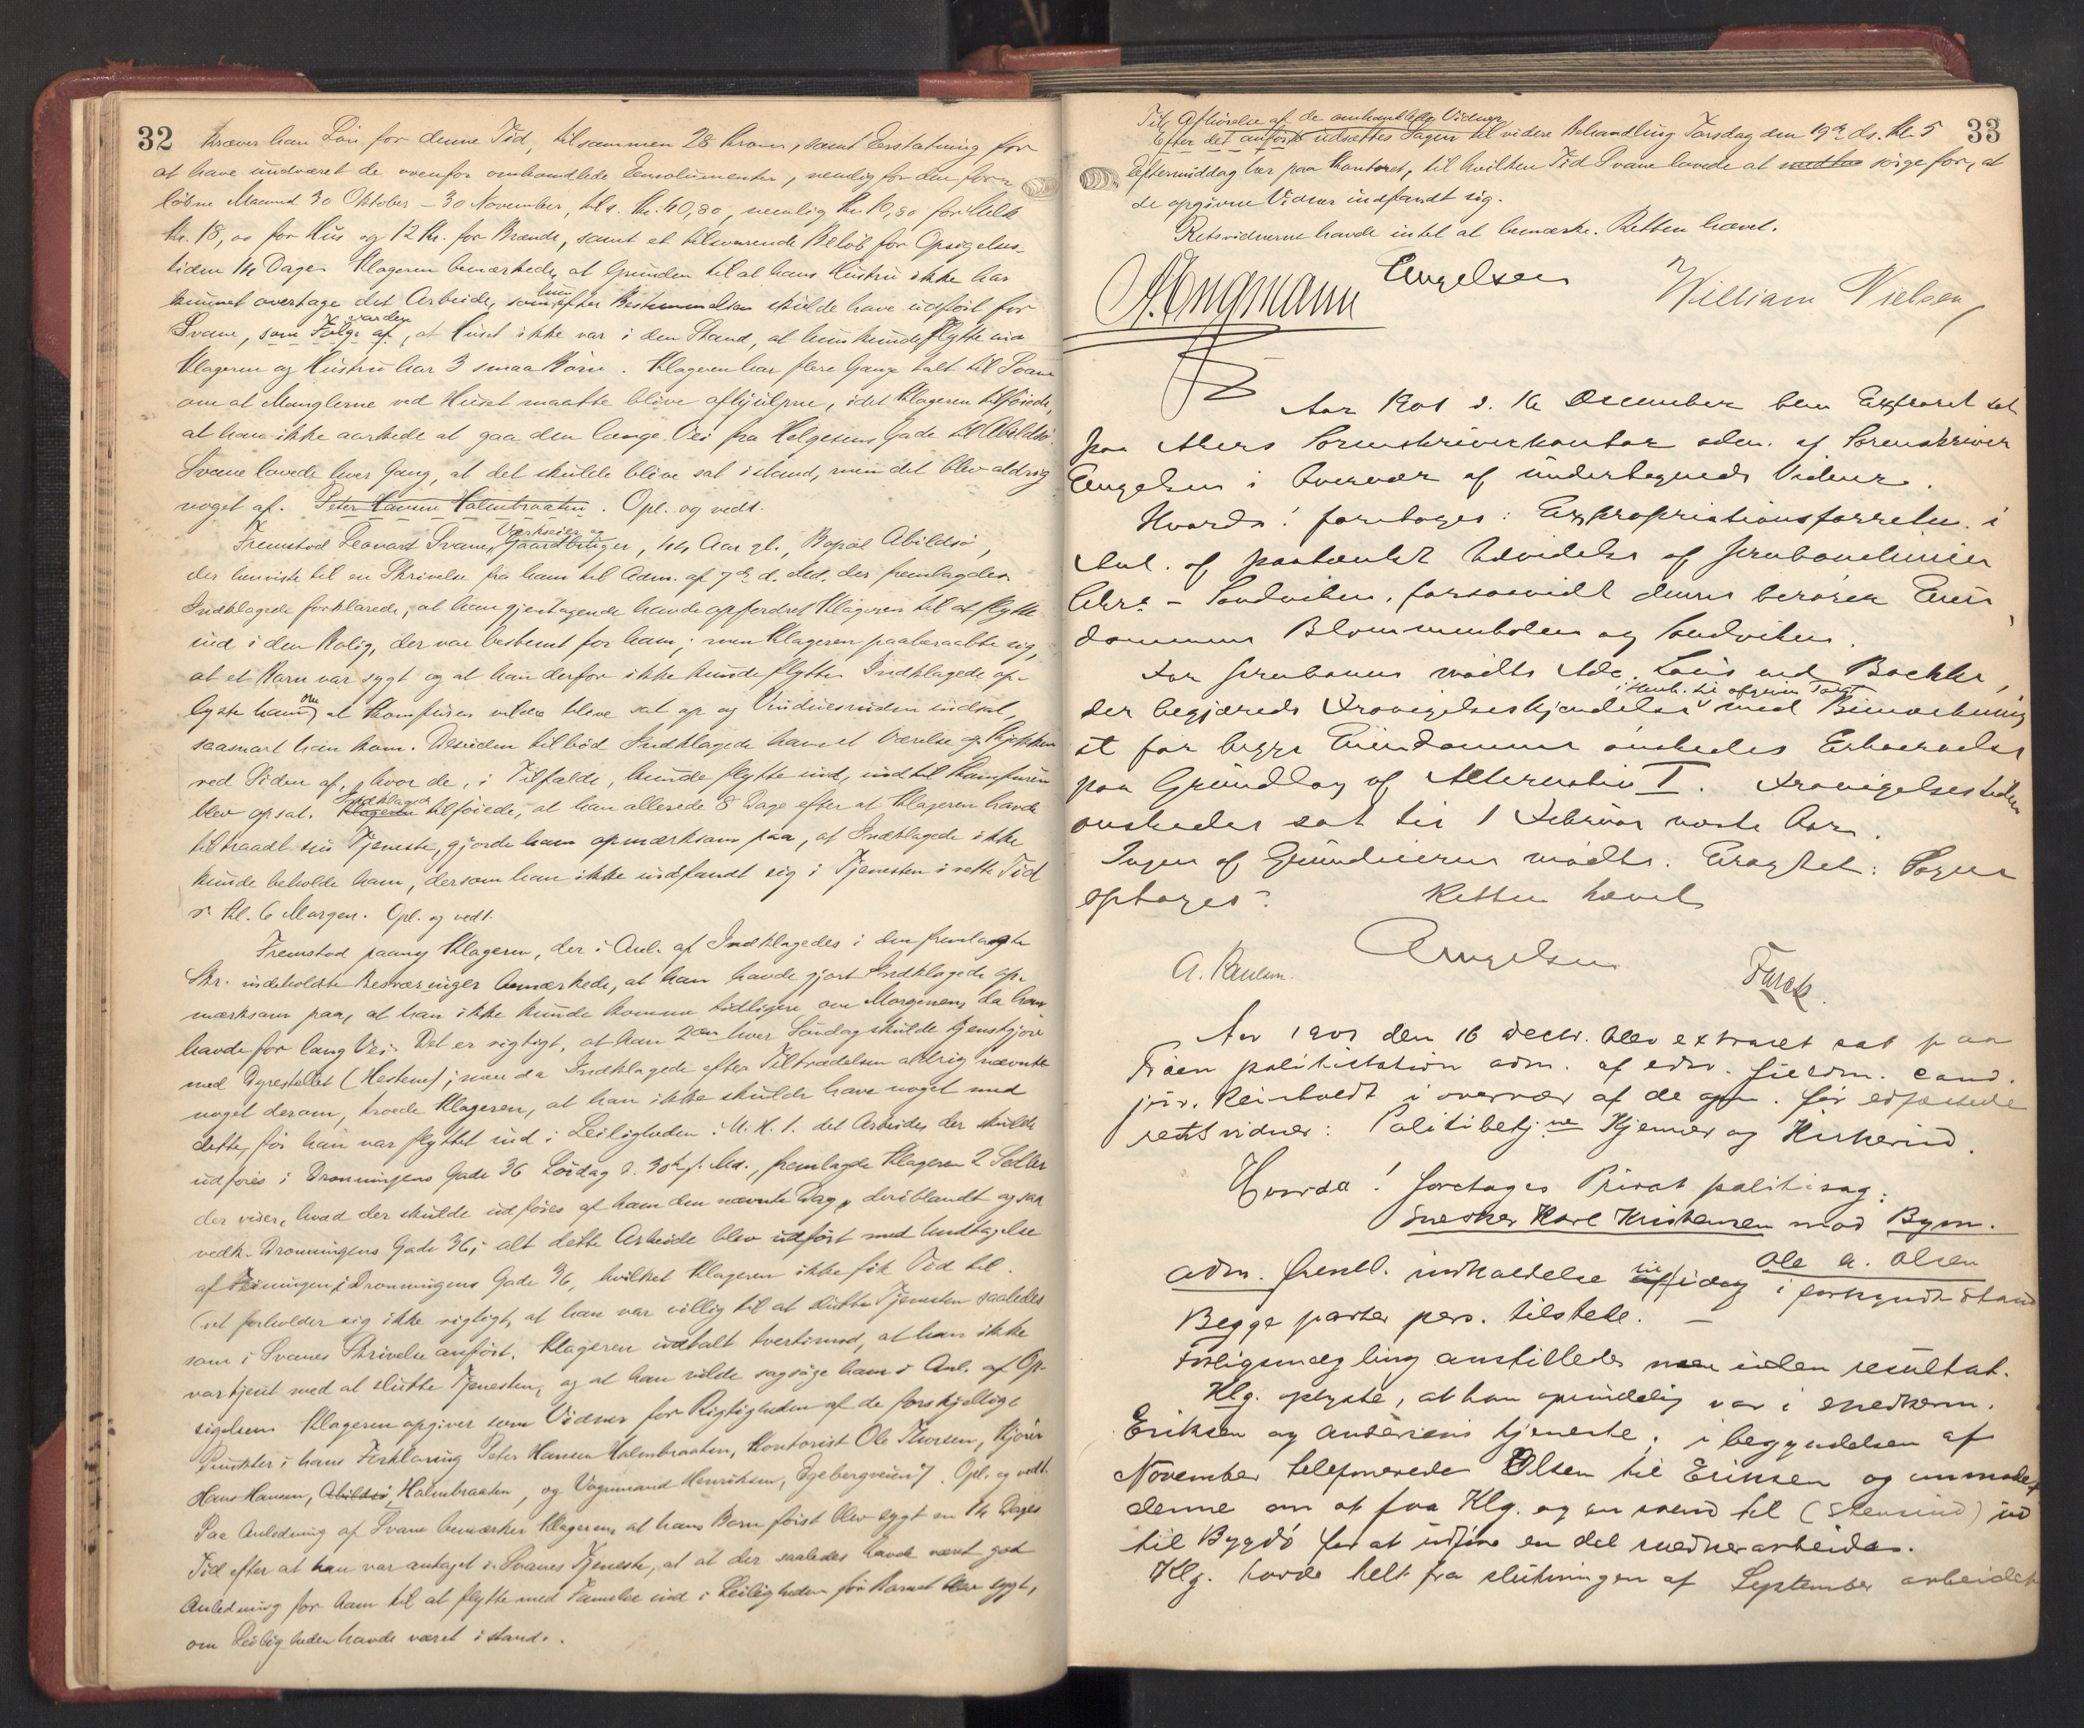 32
kræver han Løn for denne Tid, tilsammen 28 Kroner, samt Erstatning for
at have undværet de ovenfor omhandlede Emolumenter, nemlig for den for-
løbne Maaned 30 Oktober – 30 November, tils. Kr. 40,80, nemlig Kr. 10,80 for Melk
Kr. 18,00 for Hus og 12 Kr. for Brænde, samt et tilsvarende Beløb for Opsigelses-
tiden 14 Dage. Klageren bemærkede, at Grunden til at hans Hustru ikke har
kunnet overtage det Arbeide, som hun efter Bestemmelsen skulde have udført for
Svane, som Følge af, var den, at Huset ikke var i den Stand, at hun kunde flytte ind
Klageren og Hustru har 3 smaa Børn. Klageren har flere Gange talt til Svane
om at Manglerne ved Huset maatte blive afhjulpne, idet Klageren tilføiede,
at han ikke aarkede at gaa den lange Vei fra Helgesens Gade til Abildsø.
Svane lovede hver Gang, at det skulde blive sat istand, men det blev aldrig
noget af. Peter Hansen Halmbraaten. Opl. og vedt.
Fremstod Leonart Svane, Værkseier og Gaardbruger, 44 Aar gl., Bopæl Abildsø,
der henviste til en Skrivelse fra ham til Adm. af 7de d. Md. der fremlagdes.
Indklagede forklarede, at han gjentagende havde opfordret Klageren til at flytte
ind i den Bolig, der var bestemt for ham; men Klageren paaberaabte sig,
at et Barn var sygt og at han derfor ikke kunde flytte. Indklagede op-
lyste ham om at Komfuren vilde blive sat op og Vinduesruden indsat,
saasnart han kom. Desuden tilbød Indklagede ham et Værelse og Kjøkken
ved Siden af, hvor de, i Tilfælde, kunde flytte ind, indtil Komfuren
blev opsat. Klageren Indklagede tilføiede, at han allerede 8 Dage efter at Klageren havde
tiltraadt sin Tjeneste, gjorde ham opmærksom paa, at Indklagede ikke
kunde beholde ham, dersom han ikke indfandt sig i Tjenesten i rette Tid
Kl. 6 Morgen. Opl. og vedt.
Fremstod paany Klageren, der i Anl. af Indklagedes i den fremlagte
Skr. indeholdte Besværinger bemærkede, at han havde gjort Indklagede op-
mærksom paa, at han ikke kunde komme tidligere om Morgenen, da han
havde for lang Vei. Det er rigtigt, at han 2den hver Søndag skulde tjenstgjøre
med Dyrestellet (Hestene); men da Indklagede efter Tiltrædelsen aldrig nævnte
noget derom, troede Klageren, at han ikke skulde have noget med
dette, før han var flyttet ind i Leiligheden. M. H. t. det Arbeide, der skulde
udføres i Dronningens Gade 36 Lørdag d. 30te f. Md., fremlagde Klageren 2 Sedler
der viser, hvad der skulde udføres af ham den nævnte Dag, deriblandt ogsaa
vedk. Dronningens Gade 36; alt dette Arbeide blev udført med Undtagelse
af i Dronningens Gade 36, hvilket Klageren ikke fik Tid til.
Det forholder sig ikke rigtigt, at han var villig til at slutte Tjenesten saaledes
som i Svanes Skrivelse anført. Klageren udtalt tvertimod, at han ikke
var tjent med at slutte Tjenesten, og at han vilde sagsøge ham i Anl. af Op-
sigelsen. Klageren opgiver som Vidner for Rigtigheden af de forskjellige
Punkter i hans Forklaring Peter Hansen Halmbraaten, Kontorist Ole Thorsen, Kjører
Hans Hansen, Abildsø, Halmbraaten, og Vognmand Henriksen, Egebergveien 7. Opl. og vedt.
Paa Anledning af Svane bemærker Klageren, at hans Barn først blev sygt en 14 Dages
Tid efter at han var antaget i Svanes Tjeneste, at at der saaledes havde været god
Anledning for ham til at flytte med Familie ind i Leiligheden før Barnet blev sygt,
om Leiligheden havde været istand.
33
Til Afhørelse af de omhandlede Vidner
Efter det anførte udsættes Sagen til videre Behandling Torsdag den 19de ds. Kl. 5
Eftermiddag her paa Kontoret, til hvilken Tid Svane lovede at sørge for, at
de opgivne Vidner indfandt sig.
Retsvidnerne havde intet at bemærke. Retten hævet.
A. Engmann Engelsen William Nielsen
Aar 1901 d. 16 December blev Extraret sat
paa Akers Sorenskriverkontor adm. af Sorenskriver
Engelsen i Overvær af undertegnede Vidner.
Hvorda! foretoges: Expropriationsforretn. i
Anl. af paatænkt Udvidelse af Jernbanelinien
Chra – Sandviken, forsaavidt denne berører Eien-
dommene Blommenholm og Sandviken.
For Jernbanen mødte Adv. Lous ved Backer,
der begjærede Fravigelseskjendelse i Henh. til afgiven Taxt med Bemærkning
at for begge Eiendomme ønskedes Erhvervelse
paa Grundlag af Alternativ I. Fravigelsestiden
ønskedes sat til 1 Februar næste Aar.
Ingen af Grundeierne mødte. Eragtet: Sagen
optages. Retten hævet
A. Paulsen. Engelsen
Aar 1901 den 16 Decbr. blev extraret sat paa
politistation adm. af edsv. fuldm. cand.
jur. Reinholdt i overvær af de opn. før edfæstede
retsvidner: Politibetj.ne Kjennær og Kirkerud.
Hvorda! foretoges Privat politisag:
Snedker Karl Kristensen mod Bygm.
Ole A. Olsen
Adm. freml. indkaldelse af til idag i forkyndt stand
Begge parter pers. tilstede. –
Forligsmægling anstilledes men uden resultat.
Klg. oplyste, at han oprindelig var i snedkerm.
Eriksen og Andersens tjeneste; i begyndelsen af
November telefonerede Olsen til Eriksen og anmodet
denne om at faa Klg. og en svend til (Stensrud) ud
til Bygdø for at udføre en del snedkerarbeide.
Klg. havde helt fra slutningen af September arbeidet